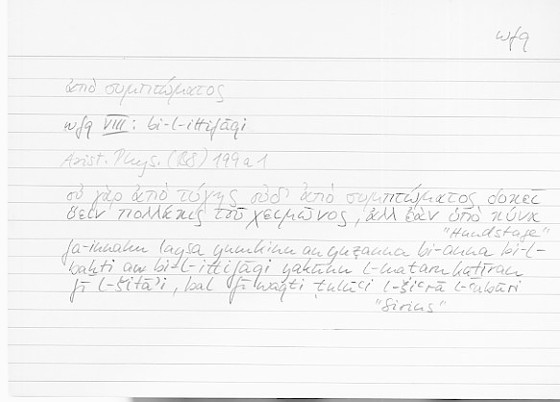 wfq
ἀπὸ συμπτώματος
wfq VIII: bi-l-ittifāqi
Arist. Phys. (B8) 199a1
οὐ γὰρ ἀπὸ τύχης οὐδ' ἀπὸ συμπτώματος δοκεῖ
ὕειν πολλάκις τοῦ χειμῶνος, ἀλλ' ἐὰν ὑπὸ κύνα
"Hundstage"
fa-innahu laysa yumkinu an yuẓanna bi-anna bi-l-
baḫti aw bi-l-ittifāqi yakūnu l-maṭaru kaṯīran
fī l-šitāʾi, bal fī waqti ṭulūʿi l-šiʿrā l-ʿabūri
"Sirius"